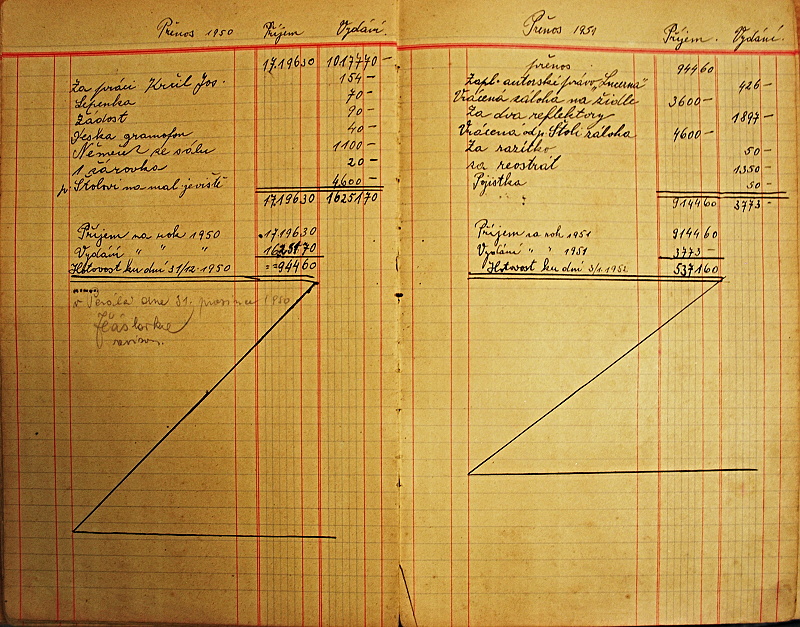 Přenos 1950 Příjem Vydání.
17.196 30 10177 70 -
Za práci Kršil Jos. 154 -
Lepenka 70 -
Žádost 90 -
Deska gramofon 40 -
Němeček ze sálu 1100 -
1 žárovka 20 -
p. Štolovi na mal. jeviště 4600 -
17.196 30 16251 70
Příjem na rok 1950 17.196 30
Vydání " " " 16251 70
Hotovost ku dni 31/12. 1950 = 944 60
dne 31. prosince 1950
revisor.
Přenos 1951 Příjem. Vydání.
přenos 944 60
Zapl. autorské právo "Lucerna" 426 -
Vrácená záloha na židle 3600 -
Za dva reflektory 1897 -
Vrácená od p. Štoli záloha 4600 -
Za razítko 50 -
za reostrát 1350 -
Pojistka 50 -
" "
9144 60 3773 -
Příjem na rok 1951 9144 60
Vydání " " 1951 3773 -
Hotovost ku dni 3/1. 1952 5371 60